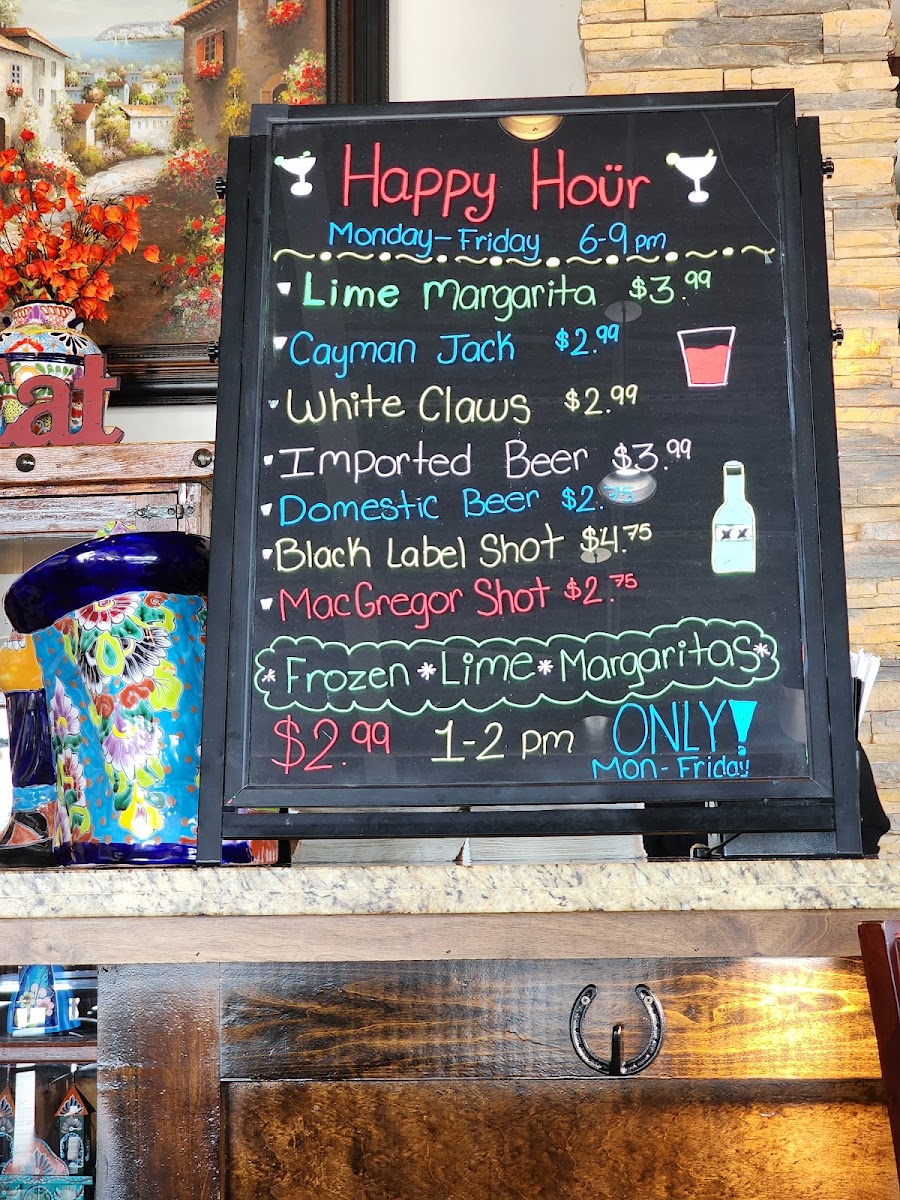 Happy Hoür
Monday-Friday 6-9 pm
Lime Margarita $3.99
Cayman Jack $2.99
White Claws $2.99
Imported Beer $3.99
Domestic Beer $2.75
Black Label Shot $4.75
MacGregor Shot $2.75
*Frozen *Lime* Margaritas*
$2.99 1-2 pm ONLY!
Mon-Friday
at